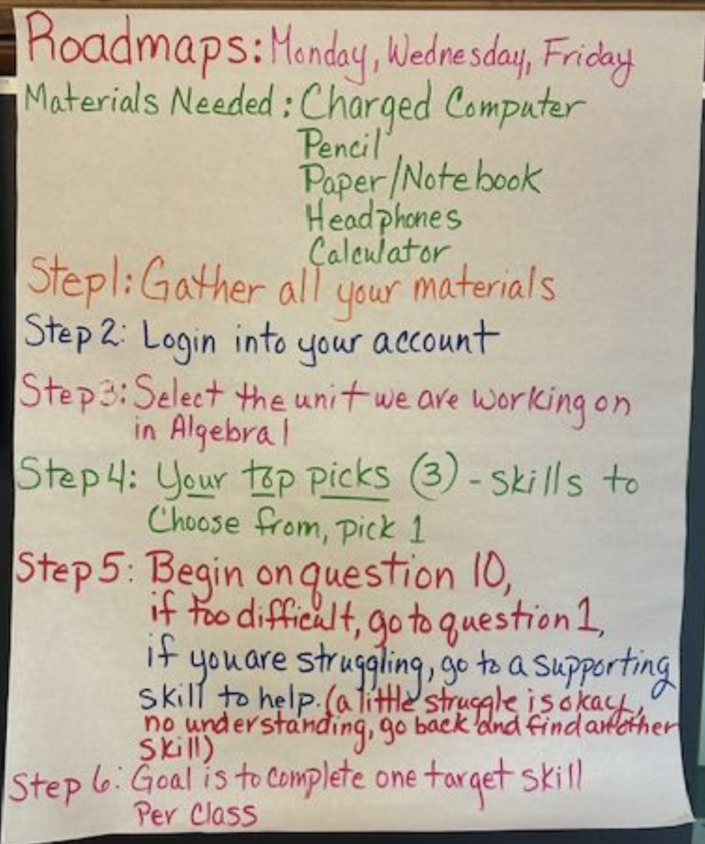 Roadmaps: Monday, Wednesday, Friday
Materials Needed: Charged Computer
Pencil
Paper/Notebook
Headphones
Calculator
Step1: Gather all your materials
Step 2: Login into your account
Step3: Select the unit we are working on
in Algebra 1
Step 4: Your top picks (3) - skills to
Choose from, pick 1
Step 5: Begin on question 10,
if too difficult, go to question 1,
if you are struggling, go to a supporting
skill to help. (a little struggle is okay,
no understanding, go back and find another
skill)
Step 6: Goal is to complete one target skill
Per Class